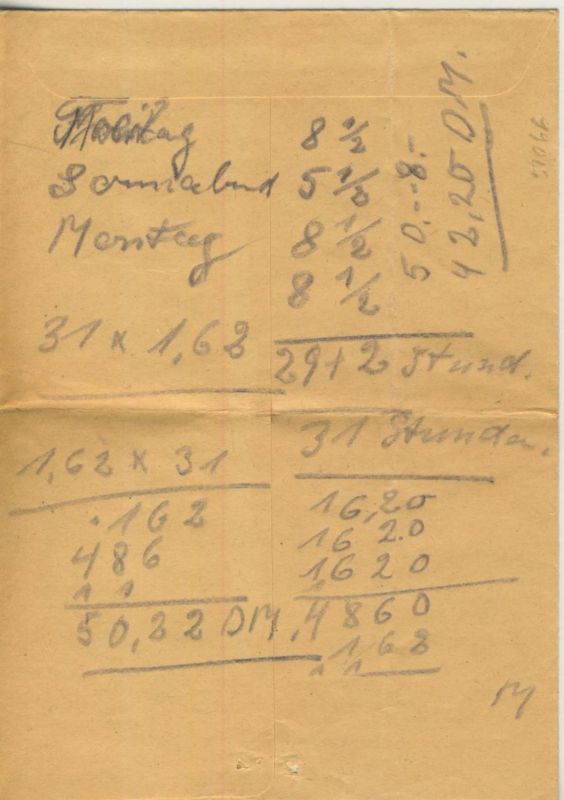 8 1/2
Sonnabend 5 1/2
Montag 8 1/2
8 1/2
31 x 1,62
29 + 2 Stund.
31 Stunden.
1,62 x 31
162
486
1 1
50,22 DM.
16,20
16 20
1620
1
4860
1,62
1 1
50.--8.-
42,20 DM.
M